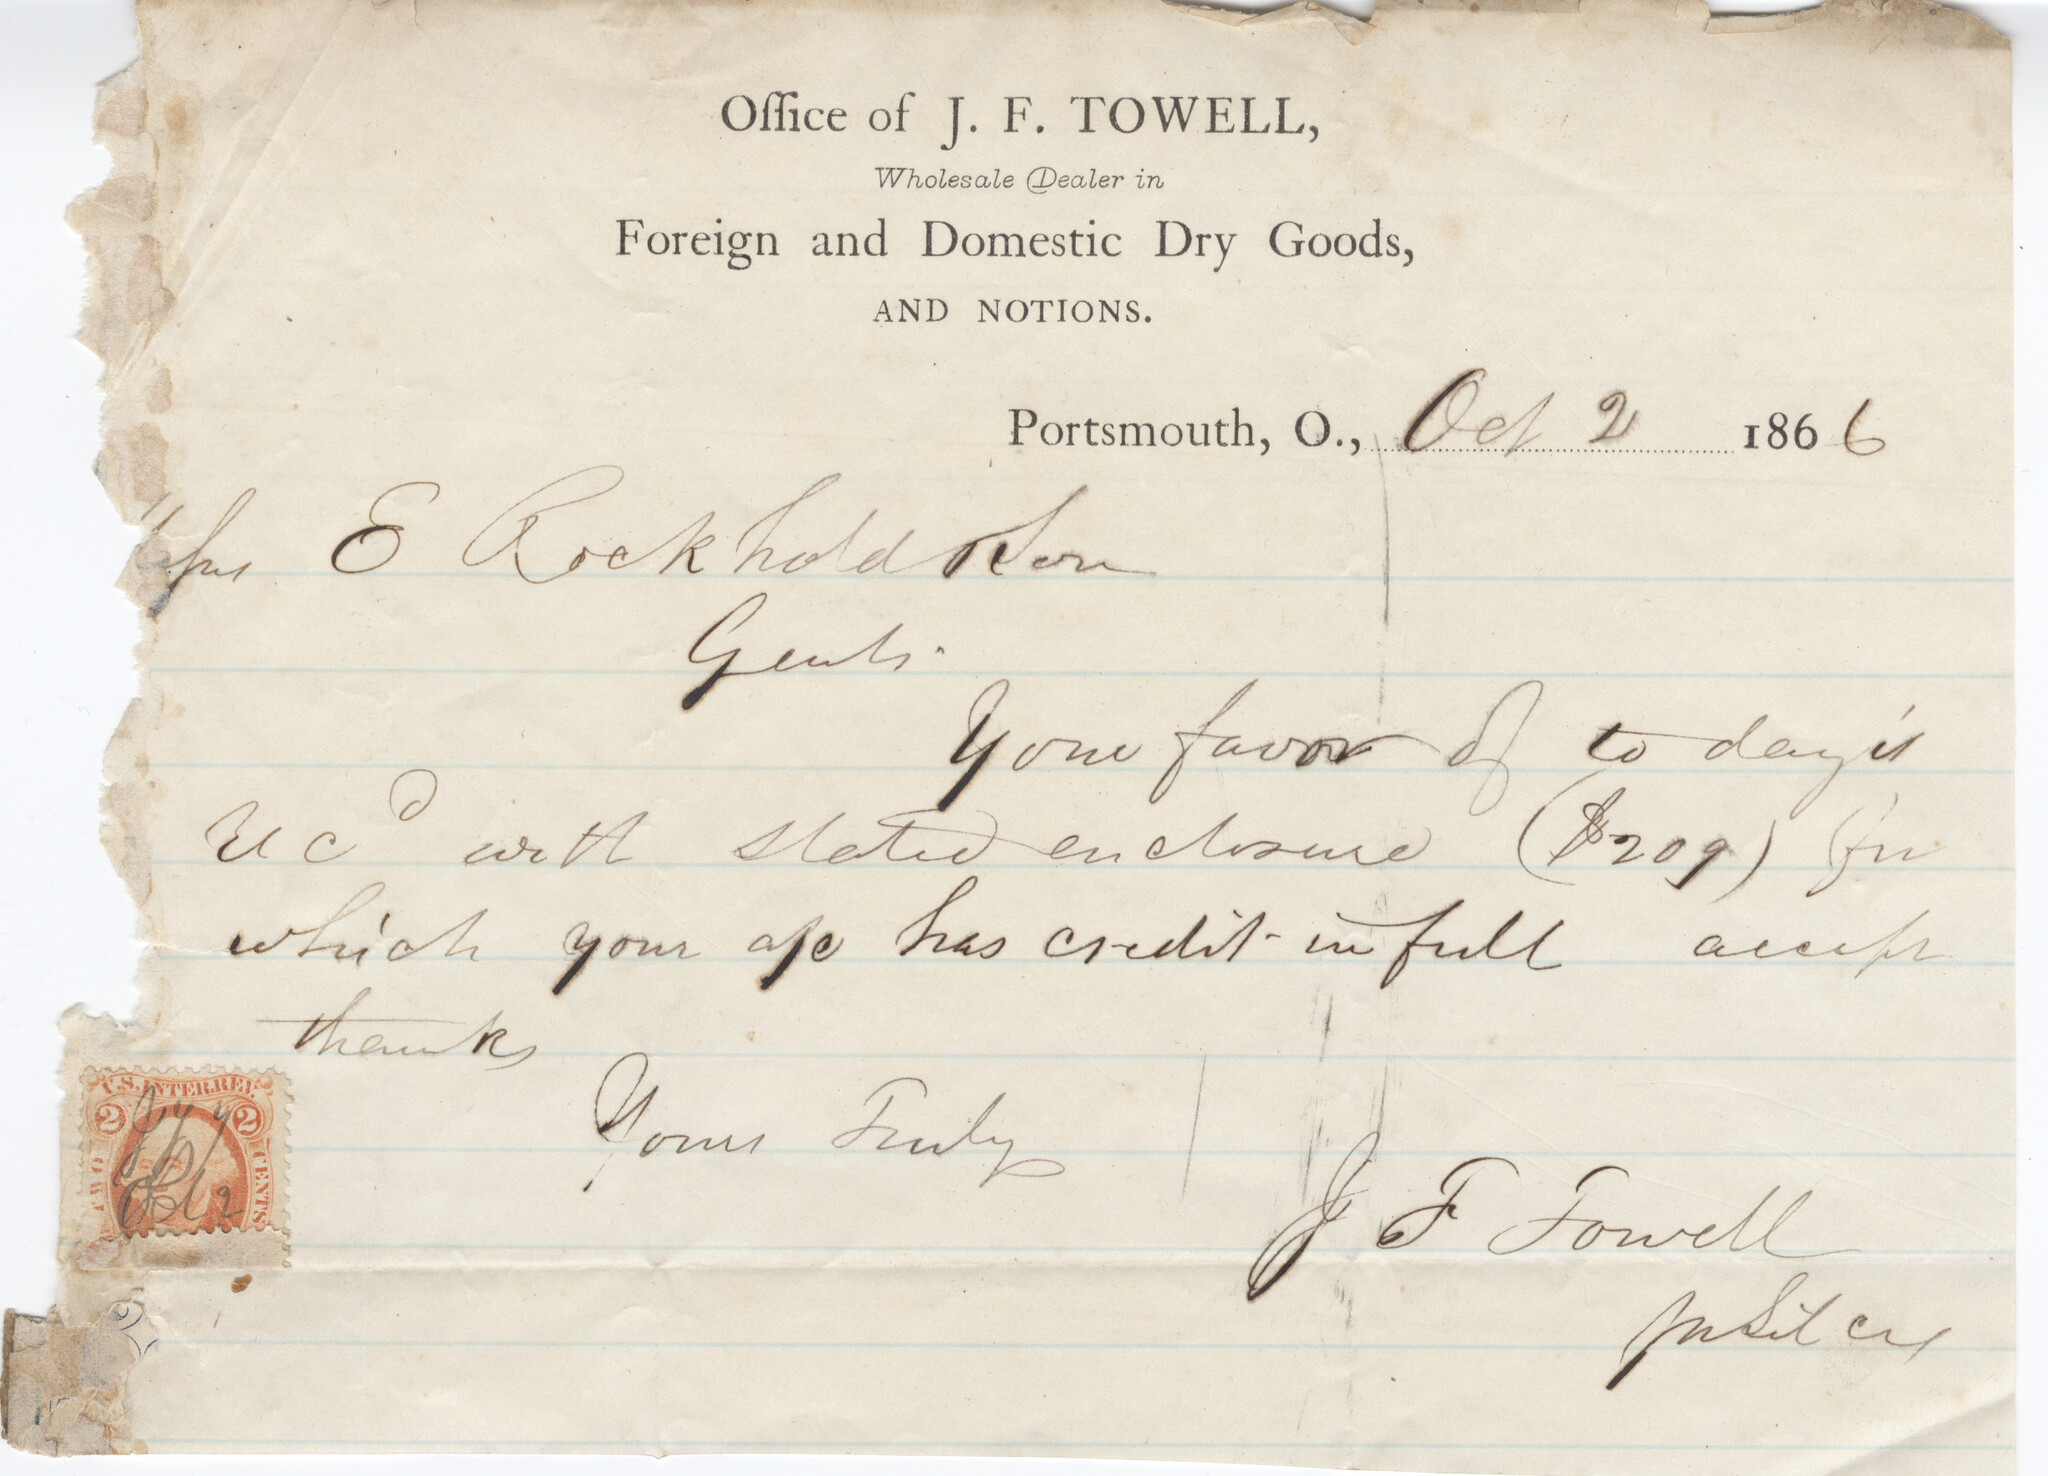 Office of J. F. TOWELL,
Wholesale Dealer in
Foreign and Domestic Dry Goods,
AND NOTIONS.
Portsmouth, O., Oct 2 1866
E Rockhold & Son
Gents.
Your favor of to day is
rec'd with stated enclosure ($209) for
which your a/c has credit in full accept
thanks
Yours Truly
J F Towell
U.S. INTER. REV.
2 2
TWO CENTS
Oct 2